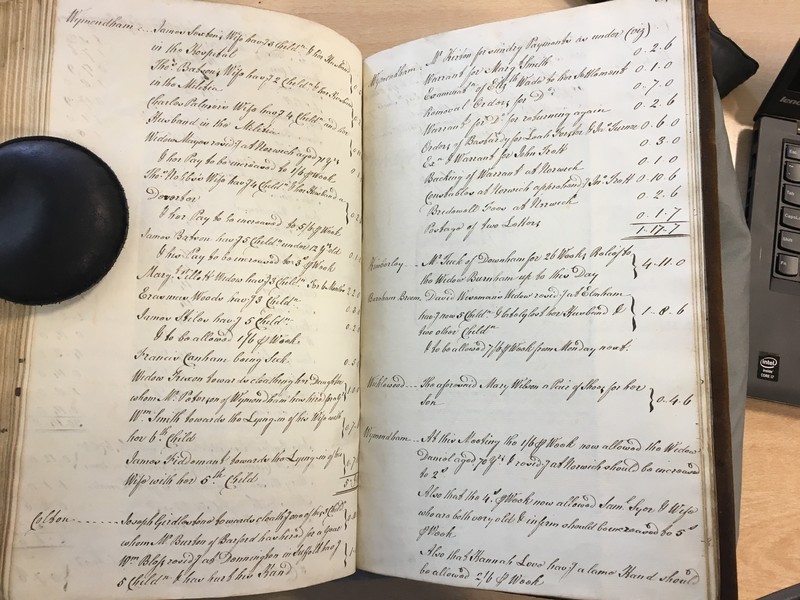 Wymondham ... James Sexton's Wife hav.g 3 Child.n & her Husband
in the Hospital
Tho.s Batson's Wife hav.g 2 Child.n & her Husband
in the Militia
Charles Palmer's Wife hav.g 4 Child.n and her
Husband in the Militia
Widow Mayes resid.g at Norwich aged 74 y.s
& her Pay to be increased to 1/6 p Week
Tho.s Nobbs's Wife hav.g 4 Child.n & her Husband a
Deserter
& her Pay to be increased to 5/6 p Week
James Batson hav.g 5 Child.n under 12 y.s old
& his Pay to be increased to 3.s p Week
Mary Widow hav.g 3 Child.n
Erasmus Woods hav.g 3 Child.n
James Stiles hav.g 5 Child.n
& to be allowed 1/6 p Week
Francis Canham being Sick
Widow towards cloathing her Daughter
whom M.r Paterson of Wymondham has hired for a y.r
W.m Smith towards the Lying-in of his Wife with
her 6.th Child
James Fiddement towards the Lying-in of his
Wife with her 5.th Child
Colton ........ Joseph Girdlestone towards cloath.g one of his Child.n
whom M.r Burton of Barford has hired for a year
W.m Bloss resid.g at Donnington in Suffolk hav.g
5 Child.n & has hurt his Hand
Wymondham .. M.r for sundry Payments as under (viz)
Warrant for Mary Smith 0.2.6
Examinat.n of Eliz.th Wade to her Settlement 0.1.0
Removal Orders for D.o 0.7.0
Warrant for D.o for returning again 0.2.6
Orders of Bastardy for & Turner 0.6.0
Ex.n & Warrant for John Trott 0.3.0
Backing of Warrant at Norwich 0.1.0
Constables at Norwich apprehend.g Jn.o Trott 0.10.6
Bridewell Fees at Norwich 0.2.6
Postage of two Letters 0.1.7
1.17.7
Kimberley ... M.r Suck of Downham for 26 Weeks Relief to
the Widow Burnham up to this Day } 4.11.0
Barnham Broom. David Wiseman's Widow resid.g at Elmham
hav.g now 5 Child.n & lately lost her Husband &
two other Child.n } 1.8.6
& to be allowed 7/6 p Week from Monday next.
Wicklewood ... The aforesaid Mary Wilson a Pair of Shoes for her
Son } 0.4.6
Wymondham ... At this Meeting the 1/6 p Week now allowed the Widow
Daniel aged 70 y.s & resid.g at Norwich should be increased
to 2.s
Also that the 4.s p Week now allowed Sam.l Syer & Wife
who are both very old & infirm should be increased to 5.s
p Week.
Also that Hannah Love hav.g a lame Hand should
be allowed 2/6 p Week
lenovo
intel
CORE i7
Tab
CapsLk
Shift
Fn